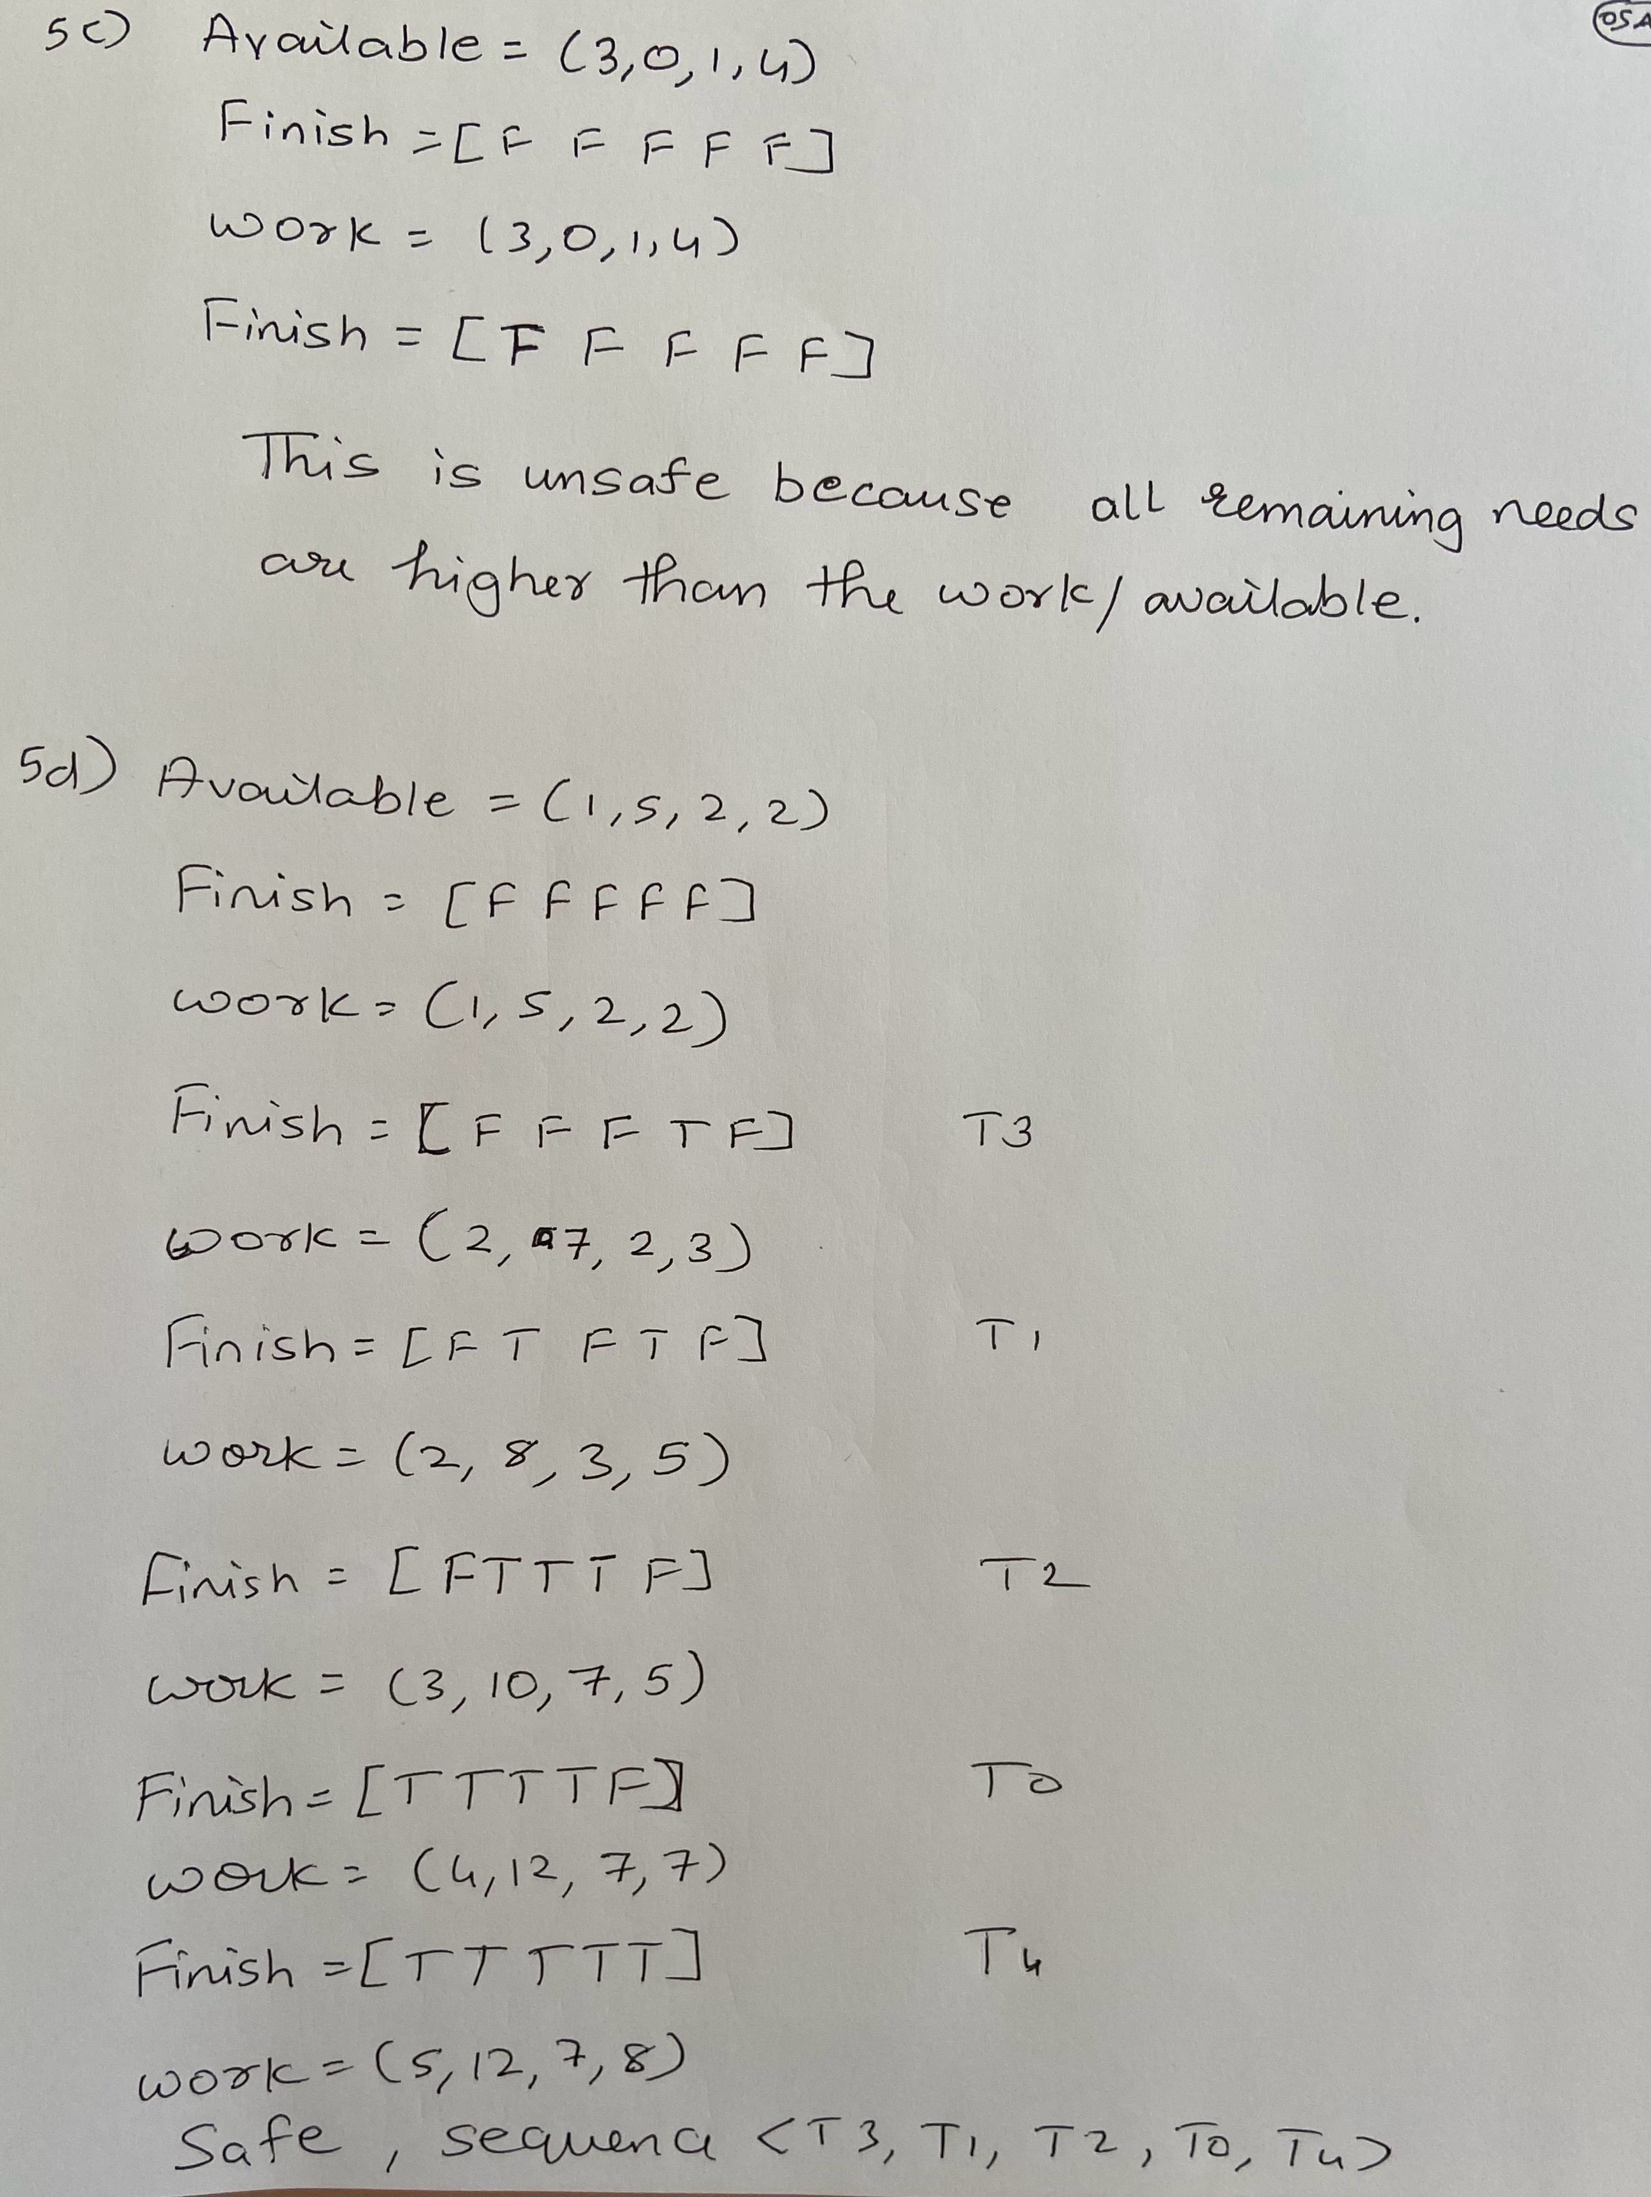 5c) Available = (3,0,1,4)
Finish = [F F F F F]
work = (3,0,1,4)
Finish = [F F F F F]
This is unsafe because all remaining needs
are higher than the work/available.
5d) Available = (1,5,2,2)
Finish = [F F F F F]
work = (1,5,2,2)
Finish = [F F F T F] T3
work = (2, 7, 2,3)
Finish = [F T F T F] T1
work = (2, 8, 3, 5)
Finish = [F T T T F] T2
work = (3, 10, 7, 5)
Finish = [T T T T F] T0
work = (4,12, 7,7)
Finish = [T T T T T] T4
work = (5,12, 7,8)
Safe, sequence <T3, T1, T2, T0, T4>